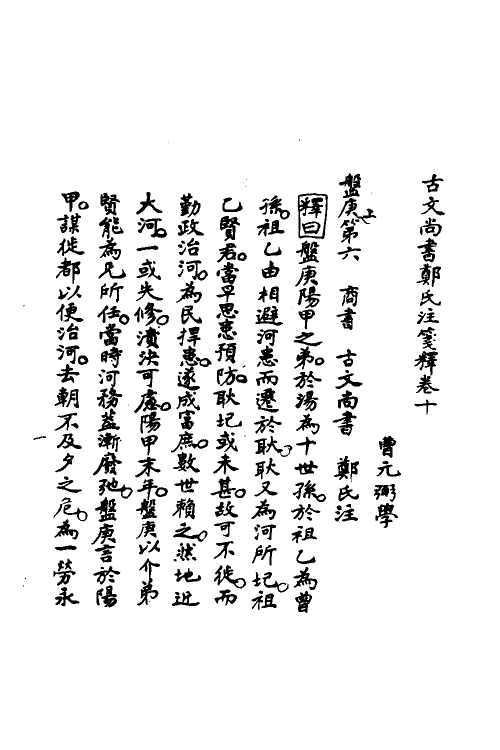 古文尚書鄭氏注箋釋卷十
曹元弼學
盤庚上第六　商書　古文尚書　鄭氏注
釋曰盤庚陽甲之弟。於湯為十世孫。於祖乙為曾
孫。祖乙由相避河患而遷於耿。耿又為河所圮。祖
乙賢君。當早思患預防。耿圮或未甚。故可不徙。而
勤政治河。為民捍患。遂成富庶。數世賴之。然地近
大河。一或失修。潰決可慮。陽甲末年。盤庚以介弟
賢能為兄所任。當時河務蓋漸廢弛。盤庚言於陽
甲。謀徙都以便治河。去朝不及夕之危。為一勞永
一